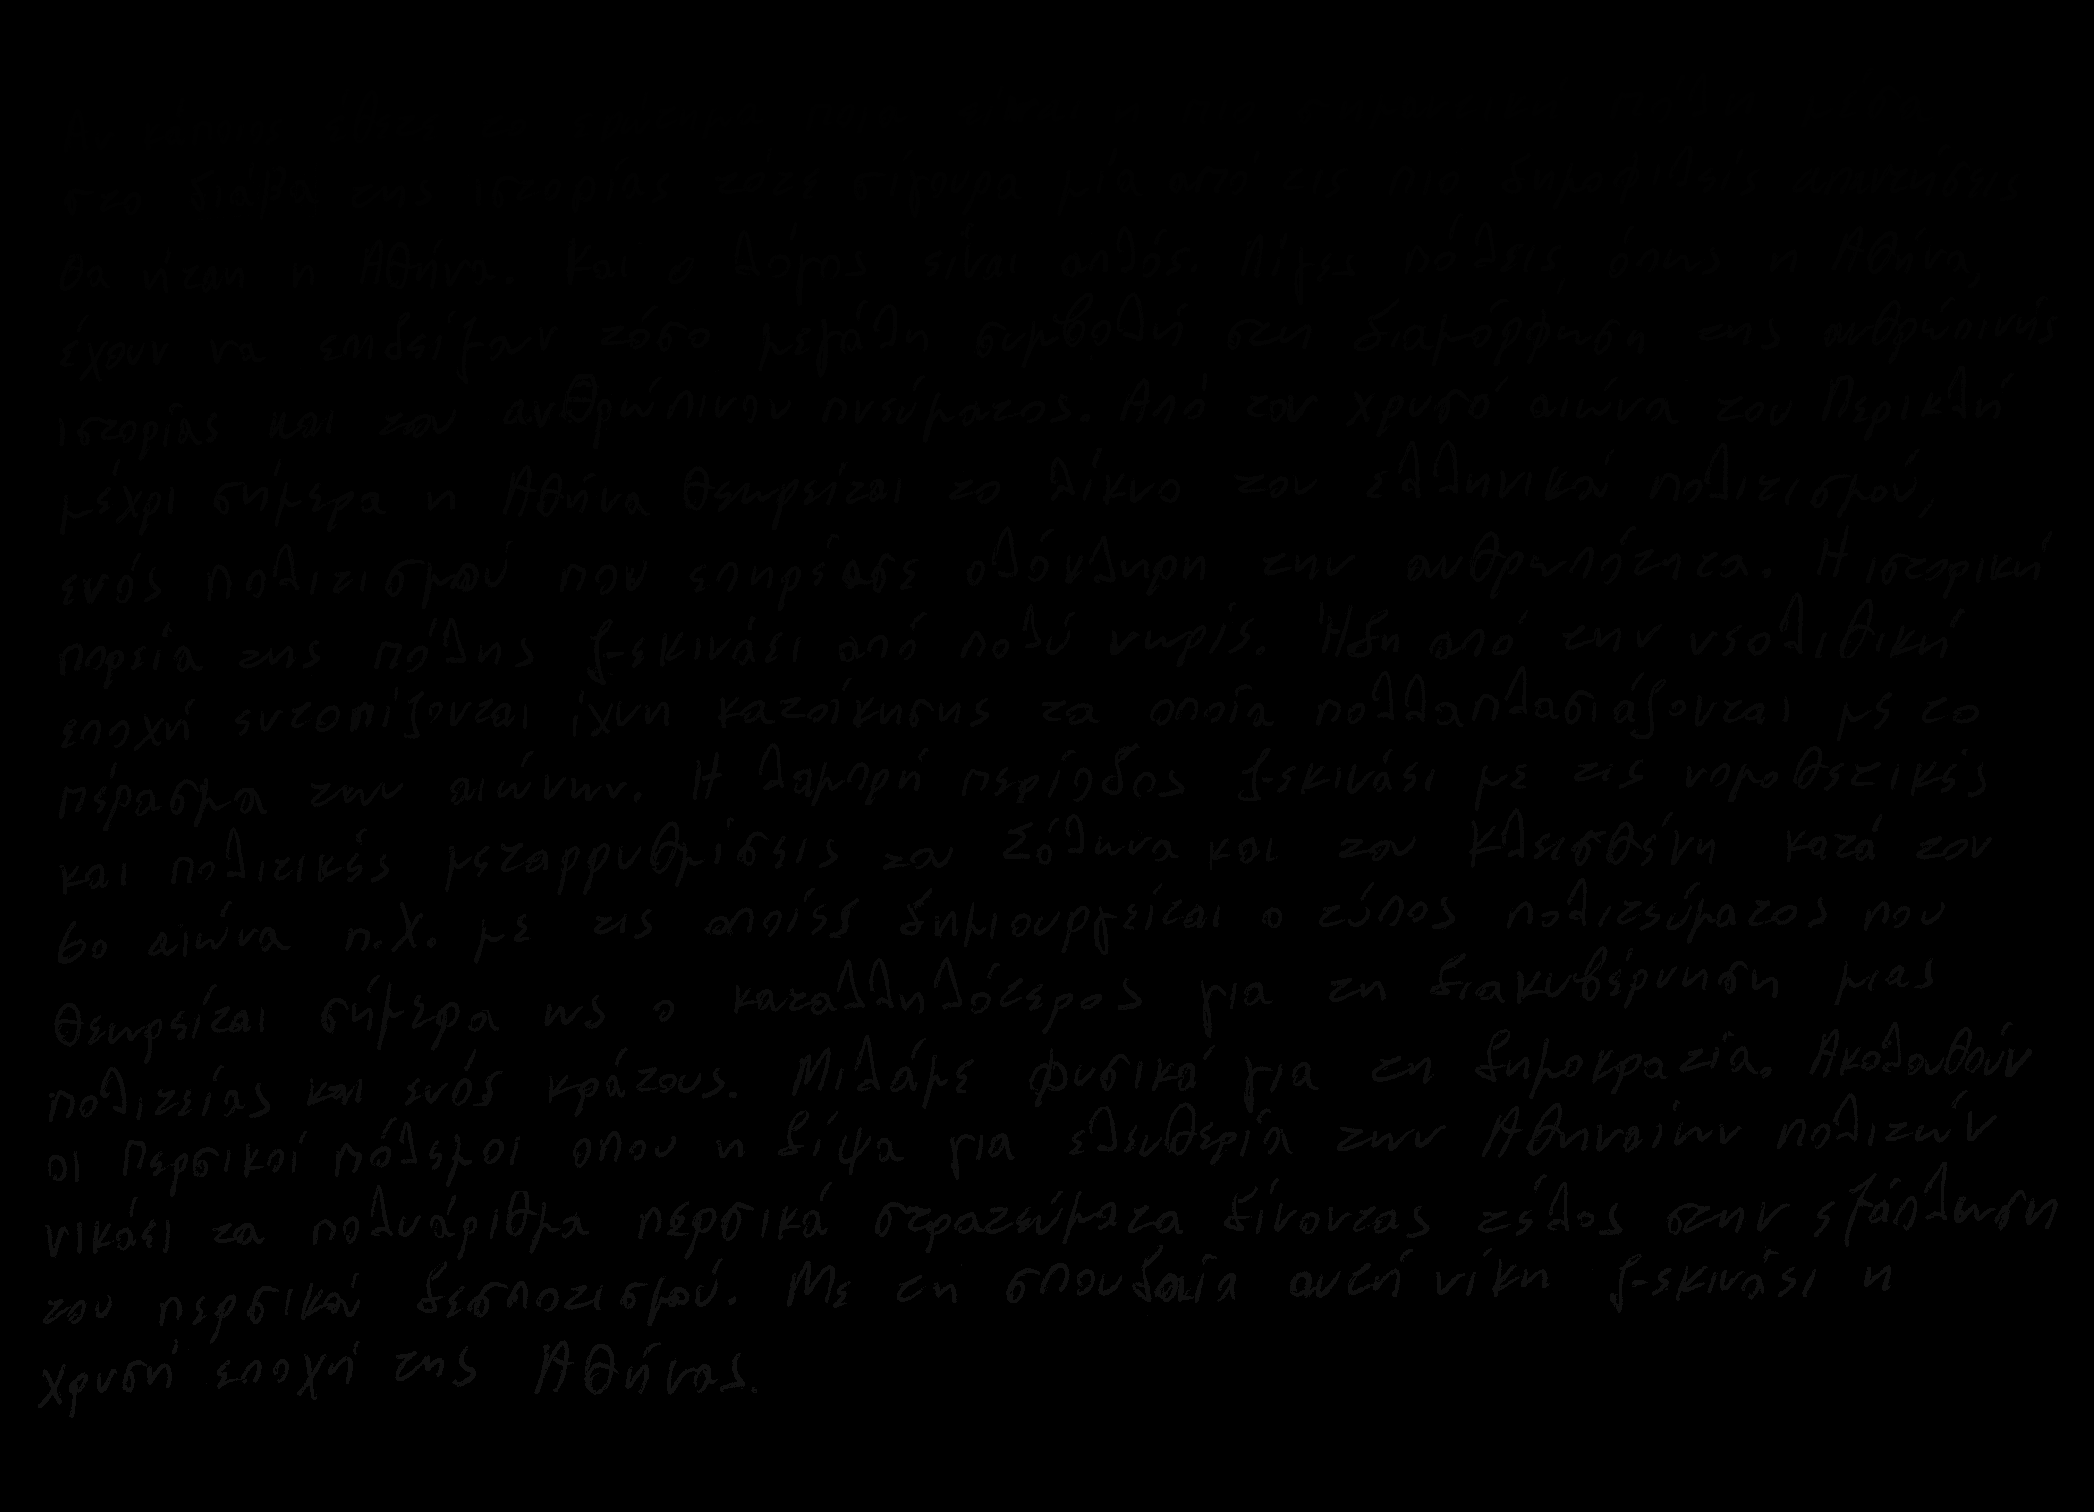 στο διάβα της ιστορίας τότε σίγουρα μία από τις πιο δημοφιλείς απαντήσεις
θα ήταν η Αθήνα. Και ο λόγος είναι απλός. Λίγες πόλεις όπως η Αθήνα,
έχουν να επιδείξουν τόσο μεγάλη συμβολή στη διαμόρφηση της ανθρώπινής
ιστορίας και του ανθρώπινου πνεύματος. Από τον χρυσό αιώνα του Περικλή
μέχρι σήμερα η Αθήνα θεωρείται το λίκνο του ελληνικού πολιτισμού,
ενός πολιτισμού που επηρέασε ολόκληρη την ανθρωπότητα. Η ιστορική
πορεία της πόλης ξεκινάει από πολύ νωρίς. Ήδη από την νεολιθική
εποχή εντοπίζονται ίχνη κατοίκησης τα οποία πολλαπλασιάζονται με το
πέρασμα των αιώνων. Η λαμπρή περίοδος ξεκινάει με τις νομοθετικές
και πολιτικές μεταρρυθμίσεις του Σόλωνα και του Κλεισθένη κατά τον
6ο αιώνα π.Χ. με τις οποίες δημιουργείται ο τύπος πολιτεύματος που
θεωρείται σήμερα ως ο καταλληλότερος για τη διακυβέρνηση μιας
πολιτείας και ενός κράτους. Μιλάμε φυσικά για τη δημοκρατία. Ακολουθούν
οι Περσικοί πόλεμοι οπου η δίψα για ελευθερία των Αθηναίων πολιτών
νικάει τα πολυάριθμα περσικά στρατεύματα δίνοντας τέλος στην εξάπλωση
του περσικού δεσποτισμού. Με τη σπουδαία αυτή νίκη ξεκινάει η
χρυσή εποχή της Αθήνας.